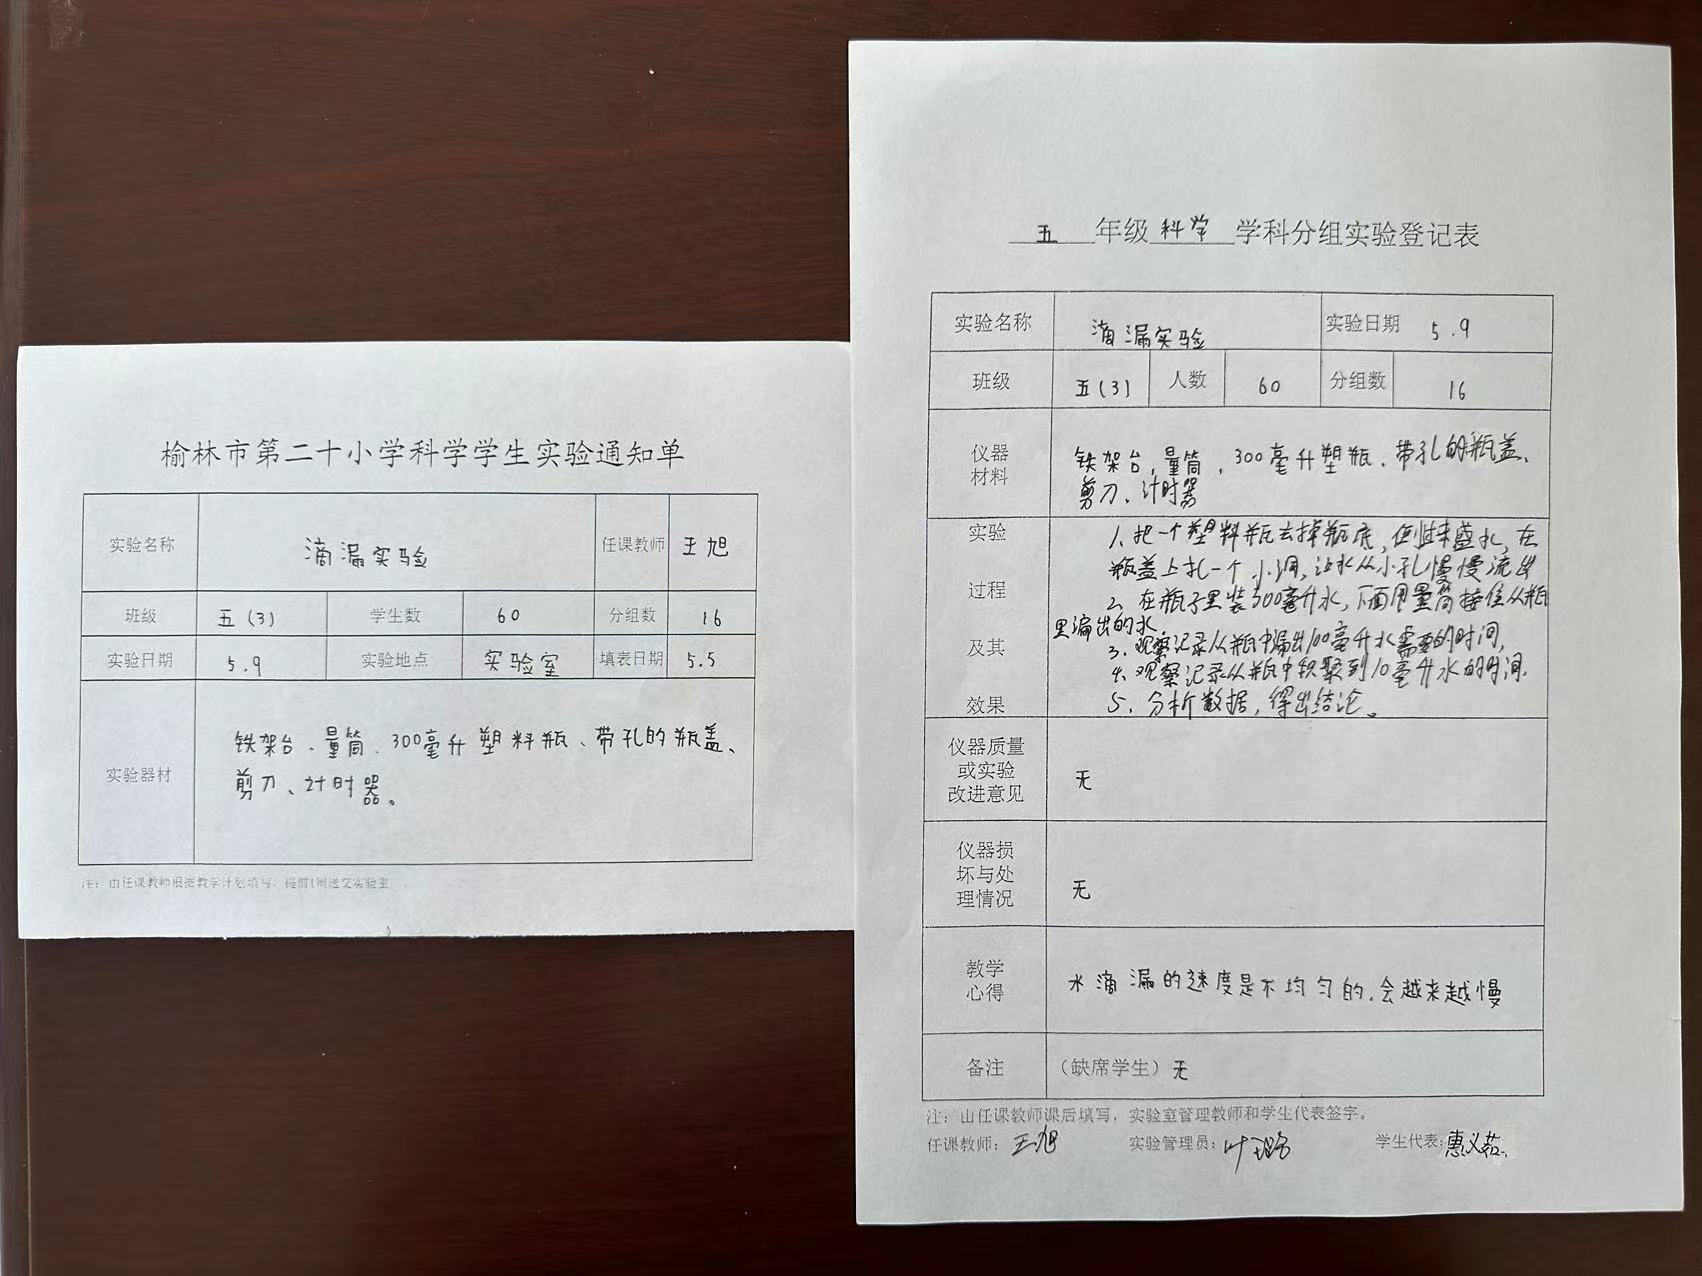 榆林市第二十小学科学学生实验通知单
实验名称 滴漏实验 任课教师 王旭
班级 五(3) 学生数 60 分组数 16
实验日期 5.9 实验地点 实验室 填表日期 5.5
实验器材
铁架台、量筒、300毫升塑料瓶、带孔的瓶盖、
剪刀、计时器。
注：由任课教师根据教学计划填写，提前1周送交实验室
五 年级 科学 学科分组实验登记表
实验名称 滴漏实验 实验日期 5.9
班级 五(3) 人数 60 分组数 16
仪器
材料
铁架台、量筒、300毫升塑瓶、带孔的瓶盖、
剪刀、计时器
实验
过程
及其
效果
1. 把一个塑料瓶去掉瓶底，倒过来盛水，在
瓶盖上扎一个小洞，让水从小孔慢慢流出
2. 在瓶子里装300毫升水，下面用量筒接住从瓶
里漏出的水
3. 观察记录从瓶中漏出100毫升水需要的时间，
4. 观察记录从瓶中积聚到10毫升水的时间.
5. 分析数据，得出结论。
仪器质量
或实验
改进意见
无
仪器损
坏与处
理情况
无
教学
心得
水滴漏的速度是不均匀的，会越来越慢
备注 （缺席学生）无
注：由任课教师课后填写，实验室管理教师和学生代表签字。
任课教师：王旭 实验管理员： 学生代表：惠义茹